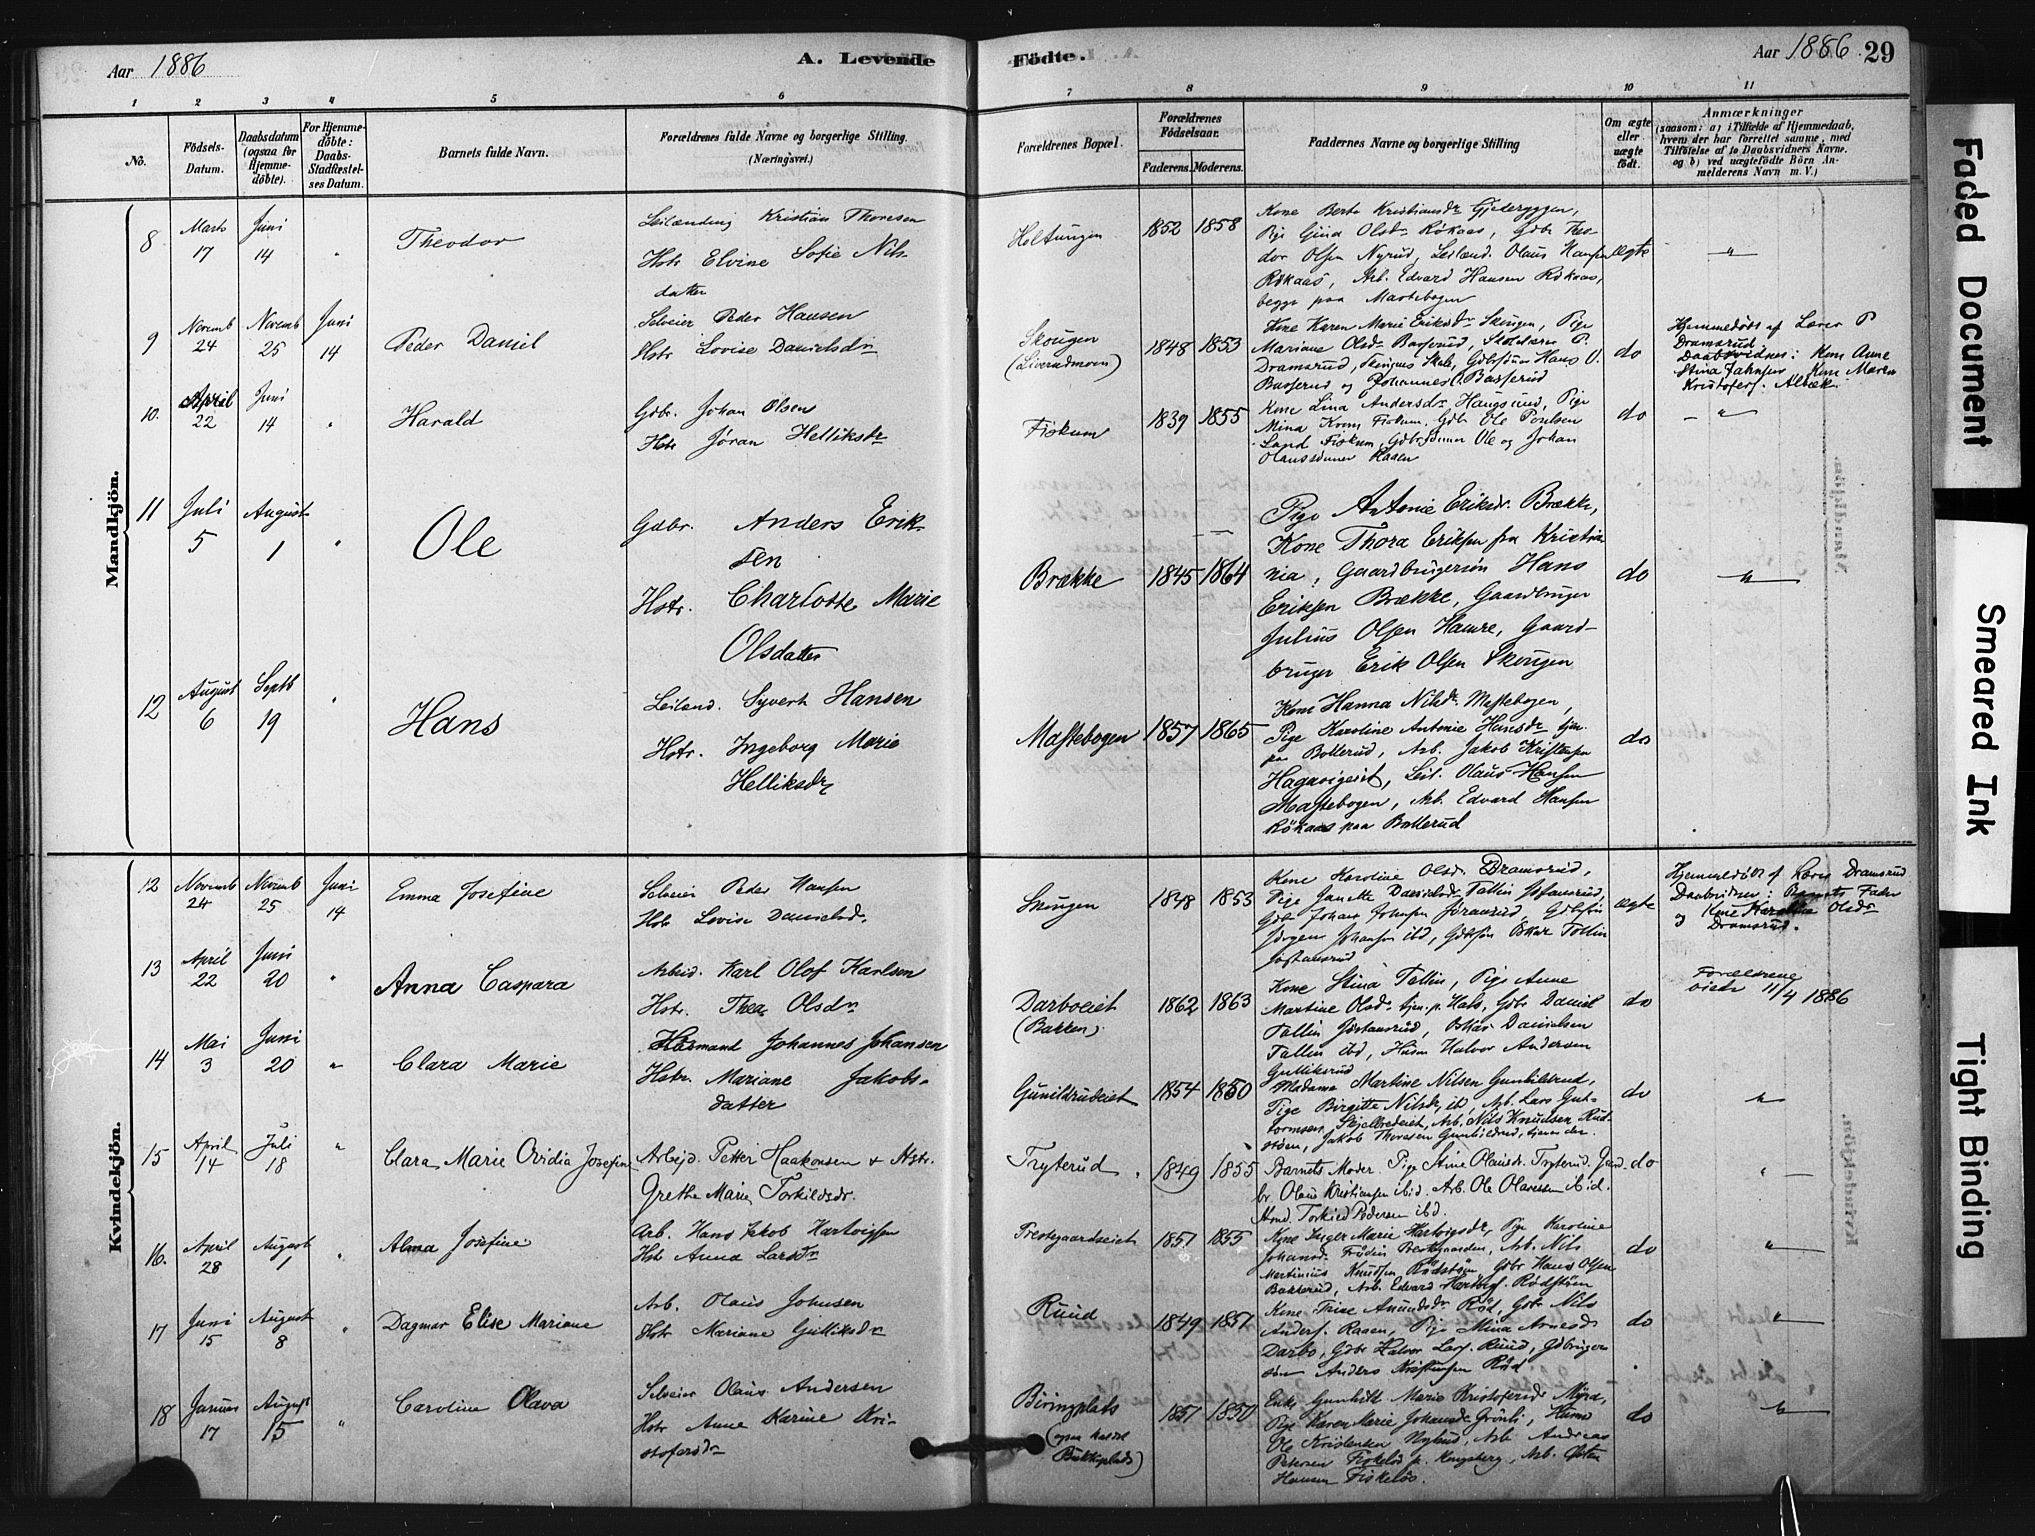 Aar 1886
A. Levende
Födte.
Aar 1886. 29
1 2 3 4 5 6 7 8 9 10 11
No.
Födsels-
Datum.
Daabsdatum
(ogsaa for
Hjemme-
döbte).
For Hjemme-
döbte:
Daabs-
Stadfæstel-
ses Datum.
Barnets fulde Navn.
Forældrenes fulde Navne og borgerlige Stilling.
(Næringsvei.)
Forældrenes Bopæl.
Forældrenes
Födselsaar.
Faderens. Moderens.
Faddernes Navne og borgerlige Stilling
Om ægte
eller
uægte
födt.
Anmærkninger
(saasom: a) i Tilfælde af Hjemmedaab,
hvem der har forrettet samme, med
Tilföielse af to Daabsvidners Navne.
og b) ved uægtefödte Börn An-
melderens Navn m. V.)
Mandkjön.
8
Marts
17
Juni
14
"
Theodor
Leilænding Kristian Thoresen
Hstr Elvine Sofie Nils-
datter
Holtungen
1852 1858
Kone Berte Kristiansdr
Pige Gina Olsdr Rökaas, Gdbr Theo-
dor Olsen Nyrud, Leilænd. Olaus Hansen
Rökaas, Arb. Edvard Hansen Rökaas,
begge paa Mastebogen
Ægte
"
9
Novemb
24
Novemb
25
Juni
14
Peder Daniel
Selveier Peder Hansen
Hstr Lovise Danielsdr
Skougen
(Liverudmoen)
1848 1853
Kone Karen Marie Eriksdr Skougen, Pige
Mariane Olsdr Basserud, P.
Dramsrud, Skougens Skole, Hans O.
Basserud og Johannes O. Basserud
do
Hjemmedöbt af Lærer P
Dramsrud.
Daabsvidner: Kone Anne
Stina Kone Maren
Kristofers. Albæk.
10.
April
22
Juni
14
"
Harald
Gdbr. Johan Olsen
Hstr Jöran Helliksdr
Fiskum
1839 1855
Kone Lina Andersdr Haugsrud, Pige
Mina Fiskum, Gdbr Ole Poulsen
Land Fiskum, Ole og Johan
Olaussönner Raaen
do
"
11
Juli
5
August
1
"
Ole
Gdbr. Anders Erik-
sen
Hstr. Charlotte Marie
Olsdatter
Brække
1845 1864
Pige Antonie Eriksdr. Brække,
Kone Thora Eriksen fra Kristia-
nia, Gaardbrugersön Hans
Eriksen Brække, Gaardbruger
Julius Olsen Hamre, Gaard-
bruger Erik Olsen Skougen
do
"
12
August
6
Septb
19
"
Hans
Leilænd. Syvert Hansen
Hstr. Ingeborg Marie
Helliksdr
Mastebogen
1857 1865
Kone Hanna Nilsdr Mastebogen,
Pige Karoline Antonie Hansdr tjen.
paa Bollerud, Arb. Jakob Kristensen
Leil. Olaus Hansen
Mastebogen, Arb. Edvard Hansen
Rökaas paa Bollerud
do
Kvindekjön.
12
Novemb
24
Novemb
25
Juni
14
Emma Josefine
Selveier Peder Hansen
Hstr Lovise Danielsdr.
Skougen
1848 1853
Kone Karoline Olsdr. Dramsrud,
Pige Janette Danielsdr. Tallin Jöstansrud,
Gdbr Johan Johnsen Göransrud, Gdbrsön
Jörgen Johansen ibd, Gdbrsön Oskar Tollin
Jöstansrud
ægte
Hjemmedöbt af Lærer Dramsrud
Daabsvidner: Barnets Fader
og Kone Karoline Olsdr
Dramsrud.
13
April
22
Juni
20
"
Anna Caspara
Arbeid. Karl Olof Karlsen
Hstr. Thea Olsdr
Darboeiet
(Bakken)
1862 1863
Kone Stina Tallin, Pige Anne
Martine Olsdr tjen. p. Hals, Gdbr Daniel
Tallin Jöstansrud, Oskar Danielsen
Tallin ibd, Husm Halvor Andersen
Gulliksrud
do
Forældrene
viede 11/4 1886
14
Mai
3
Juni
20
"
Clara Marie
Husmand Johannes Johansen
Hstr. Mariane Jakobs-
datter
Gunildrudeiet
1854 1850
Madame Martine Nilsen Gunhildrud,
Pige Birgitte Nilsdr, ibd, Arb. Lars Gut-
tormsen, Skjelbredeiet, Arb. Nils Knudsen Rud-
stöen, Jakob Thoresen Gunhildrud, tjener der.
do
"
15
April
14
Juli
18
"
Clara Marie Ovidia Josefine
Arbejd. Petter Haakonsen & Hstr.
Grethe Marie Torkildsdr.
Tryterud
1849 1855
Barnets Moder. Pige Stine Olausdr. Tryterud. Gaard-
br. Olaus Kristiansen ibid. Arb. Ole Olavessen ibid.
Torkild Pedersen ibd.
do
"
16.
April
28
August
1
"
Alma Josefine
Arb. Hans Jakob Hartvigsen
Hstr Anna Larsdr
Prestegaardseiet
1851 1855
Kone Inger Marie Hartvigsdr, Pige Karoline
Johansdr Frödin Prestegaarden, Arb. Nils
Martinius Knudsen Rödstöen, Gdbr Hans Olsen
Bakkerud, Arb. Edvard Hartvigs. Rödstöen
do
"
17
Juni
15
August
8
"
Dagmar Elise Mariane
Arb. Olaus Johnsen
Hstr Mariane Gulliksdr
Ruud
1849 1851
Kone Trine Amundsdr Röd, Gdbr Nils
Anders. Raaen, Pige Mina Arnesdr
Darbo, Gdbr Halvor Lars. Ruud, Gdbruger-
sön Anders Kristiansen Röd
do
"
18
Januar
17
August
15
"
Caroline Olava
Selveier Olaus Andersen
Hstr Anne Karine Kri-
stofersdr
Böringplats
(ogsaa kaldet
Bukkeplads)
1851 1850
Enke Gunhild Marie Kristofersdr Myra,
Pige Karen Marie Johansdr Grönli, Husmd
Ole Kristensen Nyrud, Arb. Andreas
Petersen Fiskelös p. Kongsberg, Arb. Östen
Hansen Fiskelös.
do
"
Faded Document
Smeared Ink
Tight Binding